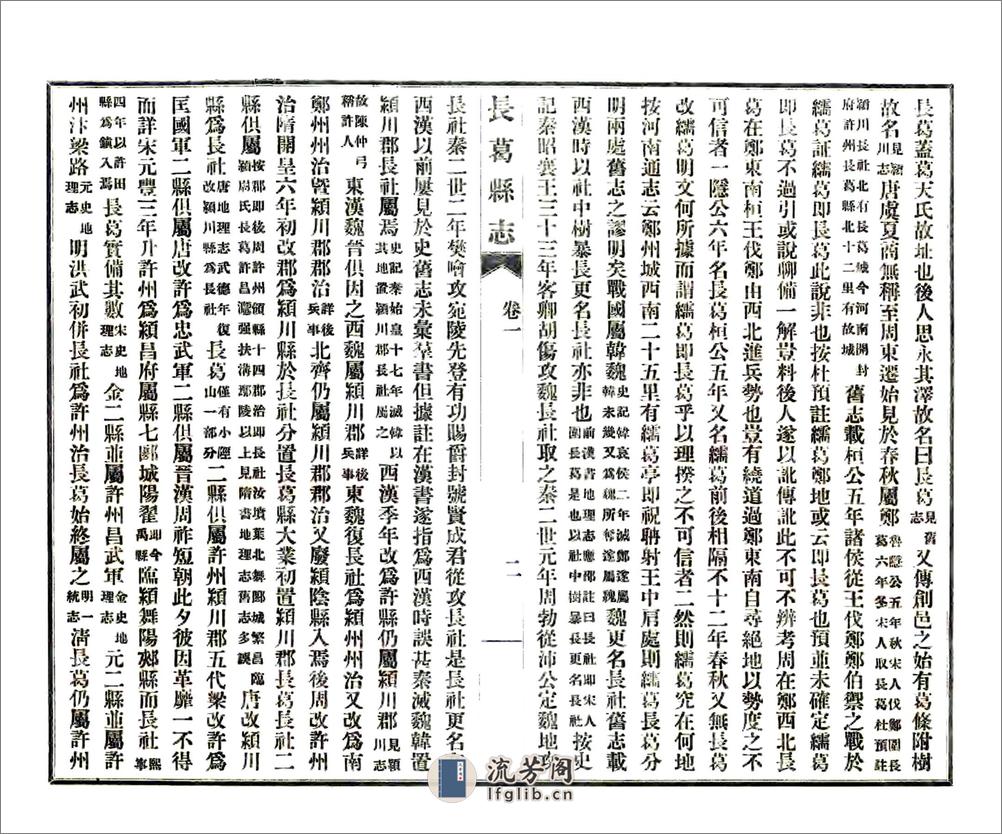 長葛蓋葛天氏故址也後人思永其澤故名曰長葛見舊志又傳創邑之始有葛條附樹
故名見潁川志唐虞夏商無稱至周東遷始見於春秋屬鄭魯隱公五年秋宋人伐鄭圍長葛六年冬宋人取長葛杜預註
潁川長社北有長葛城今河南開封府許州長葛縣北十二里有故城舊志載桓公五年諸侯從王伐鄭鄭伯禦之戰於
繻葛証繻葛即長葛此說非也按杜預註繻葛鄭地或云即長葛也預並未確定繻葛
即長葛不過引或說聊備一解豈料後人遂以訛傳訛此不可不辨考周在鄭西北長
葛在鄭東南桓王伐鄭由西北進兵勢也豈有繞道過鄭東南自尋絕地以勢度之不
可信者一隱公六年名長葛桓公五年又名繻葛前後相隔不十二年春秋又無長葛
改繻葛明文何所據而謂繻葛即長葛乎以理揆之不可信者二然則繻葛究在何地
按河南通志云鄭州城西南二十五里有繻葛亭即祝聃射王中肩處則繻葛長葛分
明兩處舊志之謬明矣戰國屬韓魏史記韓哀侯二年滅鄭遂屬韓未幾又爲魏所奪遂屬魏魏更名長社舊志載
西漢時以社中樹暴長更名長社亦非也前漢書地理志應邵註曰長社即宋人圍長葛是也以社中樹暴長更名長社按史
記秦昭襄王三十三年客卿胡傷攻魏長社取之秦二世元年周勃從沛公定魏地攻
長葛縣志 卷一 二
長社秦二世二年樊噲攻宛陵先登有功賜爵封號賢成君從攻長社是長社更名在
西漢以前屢見於史舊志未彙羣書但據註在漢書遂指爲西漢時誤甚秦滅魏韓置
潁川郡長社屬焉史記秦始皇十七年滅韓以其地置潁川郡長社屬之西漢季年改爲許縣仍屬潁川郡見潁川志
故陳仲弓稱許人東漢魏晉俱因之西魏屬潁川郡詳後兵事東魏復長社爲潁州州治又改爲南
鄭州州治曁潁川郡郡治詳後兵事北齊仍屬潁川郡郡治又廢潁陰縣入焉後周改許州
治隋開呈六年初改郡爲潁川縣於長社分置長葛縣大業初置潁川郡長葛長社二
縣俱屬按郡即後周許州領縣十四郡治即長社汝墳葉北舞郾城繁昌臨潁尉氏長葛許昌㶏强扶溝鄢陵以上見隋書地理志舊志多誤唐改潁川
縣爲長社唐地理志武德年復改潁川縣爲長社長葛僅有小陘山一部分二縣俱屬許州潁川郡五代梁改許爲
匡國軍二縣俱屬唐改許爲忠武軍二縣俱屬晉漢周祚短朝此夕彼因革靡一不得
而詳宋元豐三年升許州爲潁昌府屬縣七郾城陽翟即今禹縣臨潁舞陽郟縣而長社熙寧
四年以許田縣爲鎮入焉長葛實備其數宋史地理志金二縣並屬許州昌武軍金史地理志元二縣並屬許
州汴梁路元史地理志明洪武初併長社爲許州治長葛始終屬之明一統志清長葛仍屬許州
流芳阁
lfglib.cn